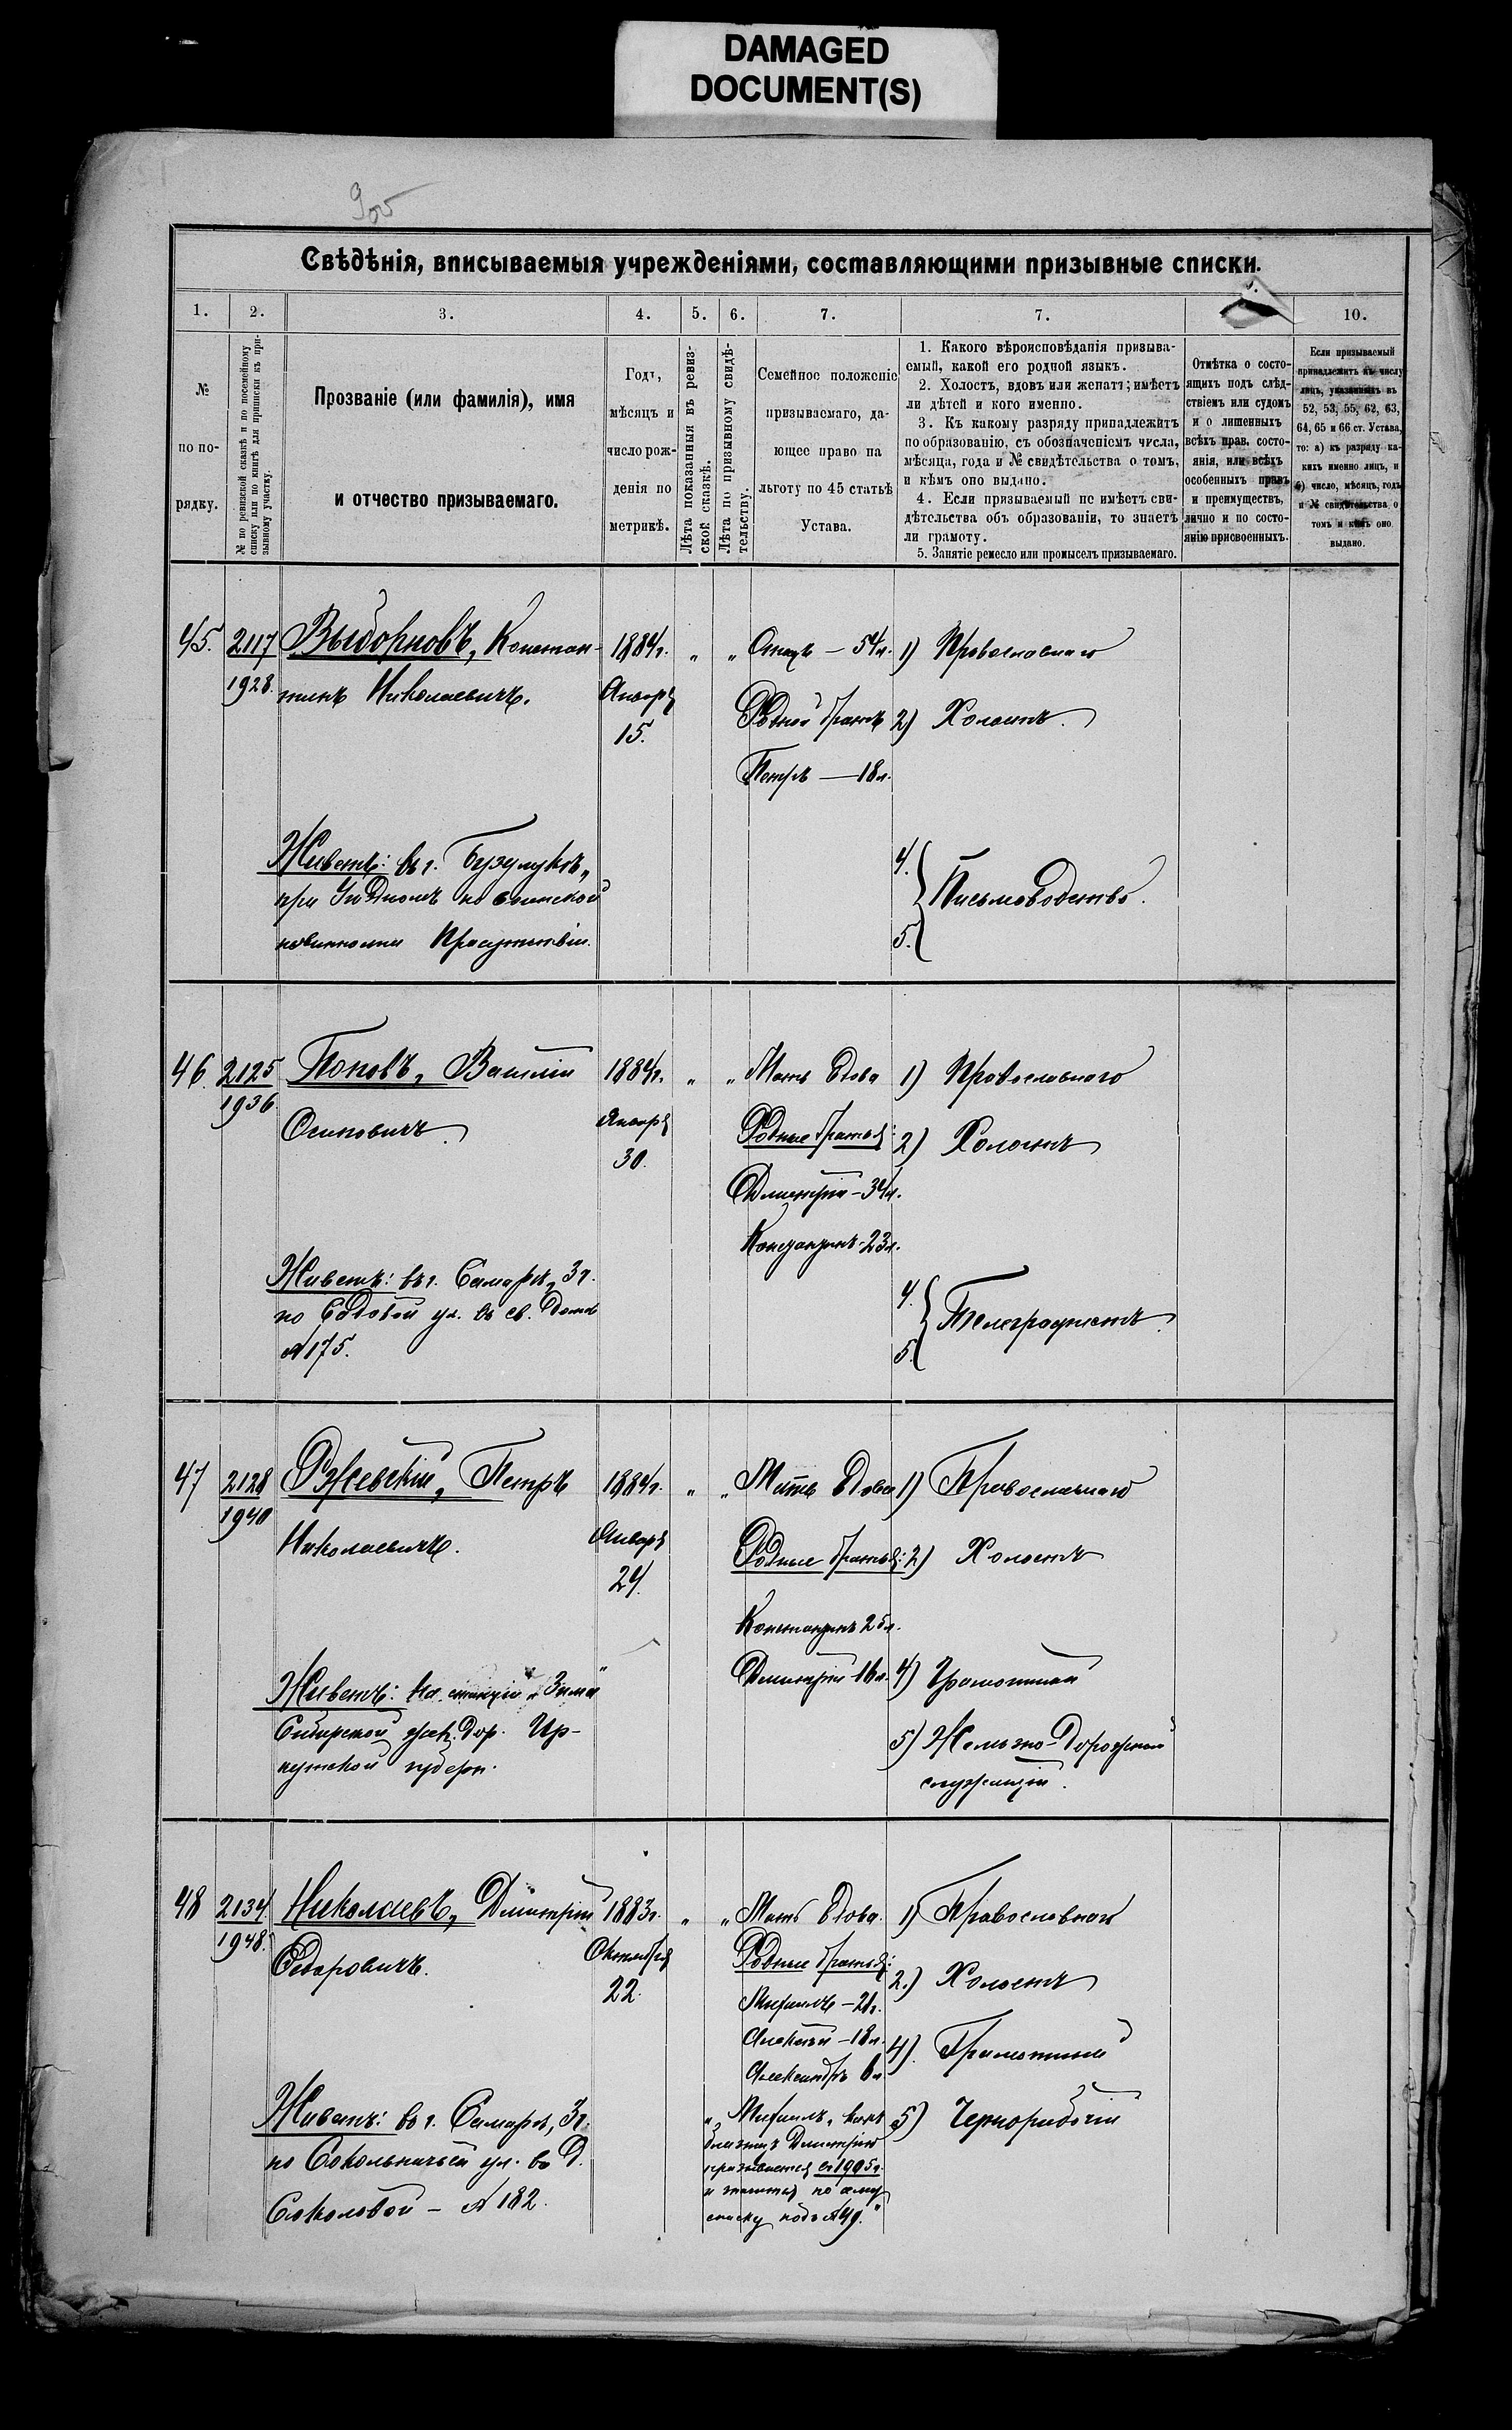 DAMAGED
DOCUMENT(S)
Свѣдѣнія, вписываемыя учрежденіями, составляющими призывные списки.
1. 2. 3. 4. 5. 6. 7. 7. 10.
№
по по-
рядку.
№ по ревизской сказкѣ и по посемейному
списку или по книгѣ для приписки къ при-
зывному участку.
Прозваніе (или фамилія), имя
и отчество призываемаго.
Годъ,
мѣсяцъ и
число рож-
денія по
метрикѣ.
Лѣта показанныя въ ревиз-
ской сказкѣ.
Лѣта по призывному свидѣ-
тельству.
Семейное положеніе
призываемаго, да-
ющее право на
льготу по 45 статьѣ
Устава.
1. Какого вѣроисповѣданія призыва-
емый, какой его родной языкъ.
2. Холостъ, вдовъ или женатъ; имѣетъ
ли дѣтей и кого именно.
3. Къ какому разряду принадлежитъ
по образованію, съ обозначеніемъ числа,
мѣсяца, года и № свидѣтельства о томъ,
и кѣмъ оно выдано.
4. Если призываемый не имѣетъ сви-
дѣтельства объ образованіи, то знаетъ
ли грамоту.
5. Занятіе ремесло или промыселъ призываемаго.
Отмѣтка о состо-
ящихъ подъ слѣд-
ствіемъ или судомъ
и о лишенныхъ
всѣхъ прав. состо-
янія, или всѣхъ
особенныхъ правъ
и преимуществъ,
лично и по состо-
янію присвоенныхъ.
Если призываемый
принадлежитъ къ числу
лицъ, указанныхъ въ
52, 53, 55, 62, 63,
64, 65 и 66 ст. Устава,
то: а) къ разряду ка-
кихъ именно лицъ, и
б) число, мѣсяцъ, годъ
и № свидѣтельства о
томъ и кѣмъ оно
выдано.
45. 2117 Выборновъ, Констан- 1884г. " " Отецъ — 54л. 1) Православнаго
1928. тинъ Николаевичъ. Января Родной братъ 2) Холостъ.
15. Петръ — 18л.
Живетъ: въ г. Бузулукѣ, 4.
при Уѣздномъ по воинской Письмоводство.
повинности Присутствіи. 5.
46. 2125 Поповъ, Василій 1884г. " " Мать вдова 1) Православнаго
1936 Осиповичъ. Января Родные братья: 2) Холостъ
30. Дмитрій — 34л.
Константинъ - 23л.
Живетъ: въ г. Самарѣ, 3ч. 4.
по Садовой ул. въ св. домѣ Телеграфистъ.
№ 175. 5.
47 2128 Ржевскій, Петръ 1884г. " " Мать вдова 1) Православнаго
1940 Николаевичъ. Января Родные братья: 2) Холостъ
24. Константинъ 25л.
Дмитрій 16л. 4) Грамотный
Живетъ: На станціи "Зима"
Сибирской жел. дор. Ир- 5) Желѣзно-Дорожный
кутской губерн. служащій.
48 2134 Николаевъ, Дмитрій 1883г. " " Мать вдова. 1) Православнаго
1948. Ѳедоровичъ. Октября Родные братья:
22. Михаилъ — 21г. 2.) Холостъ
Алексѣй — 18л. 4). Грамотный
Александръ 6л
Живетъ: въ г. Самарѣ, 3ч. „Михаилъ, какъ 5) Чернорабочій
по Сокольничьей ул. въ д. близнецъ Дмитрію
Соколовой — № 182. призывается въ 1905г.
и значится по сему
списку подъ № 49."